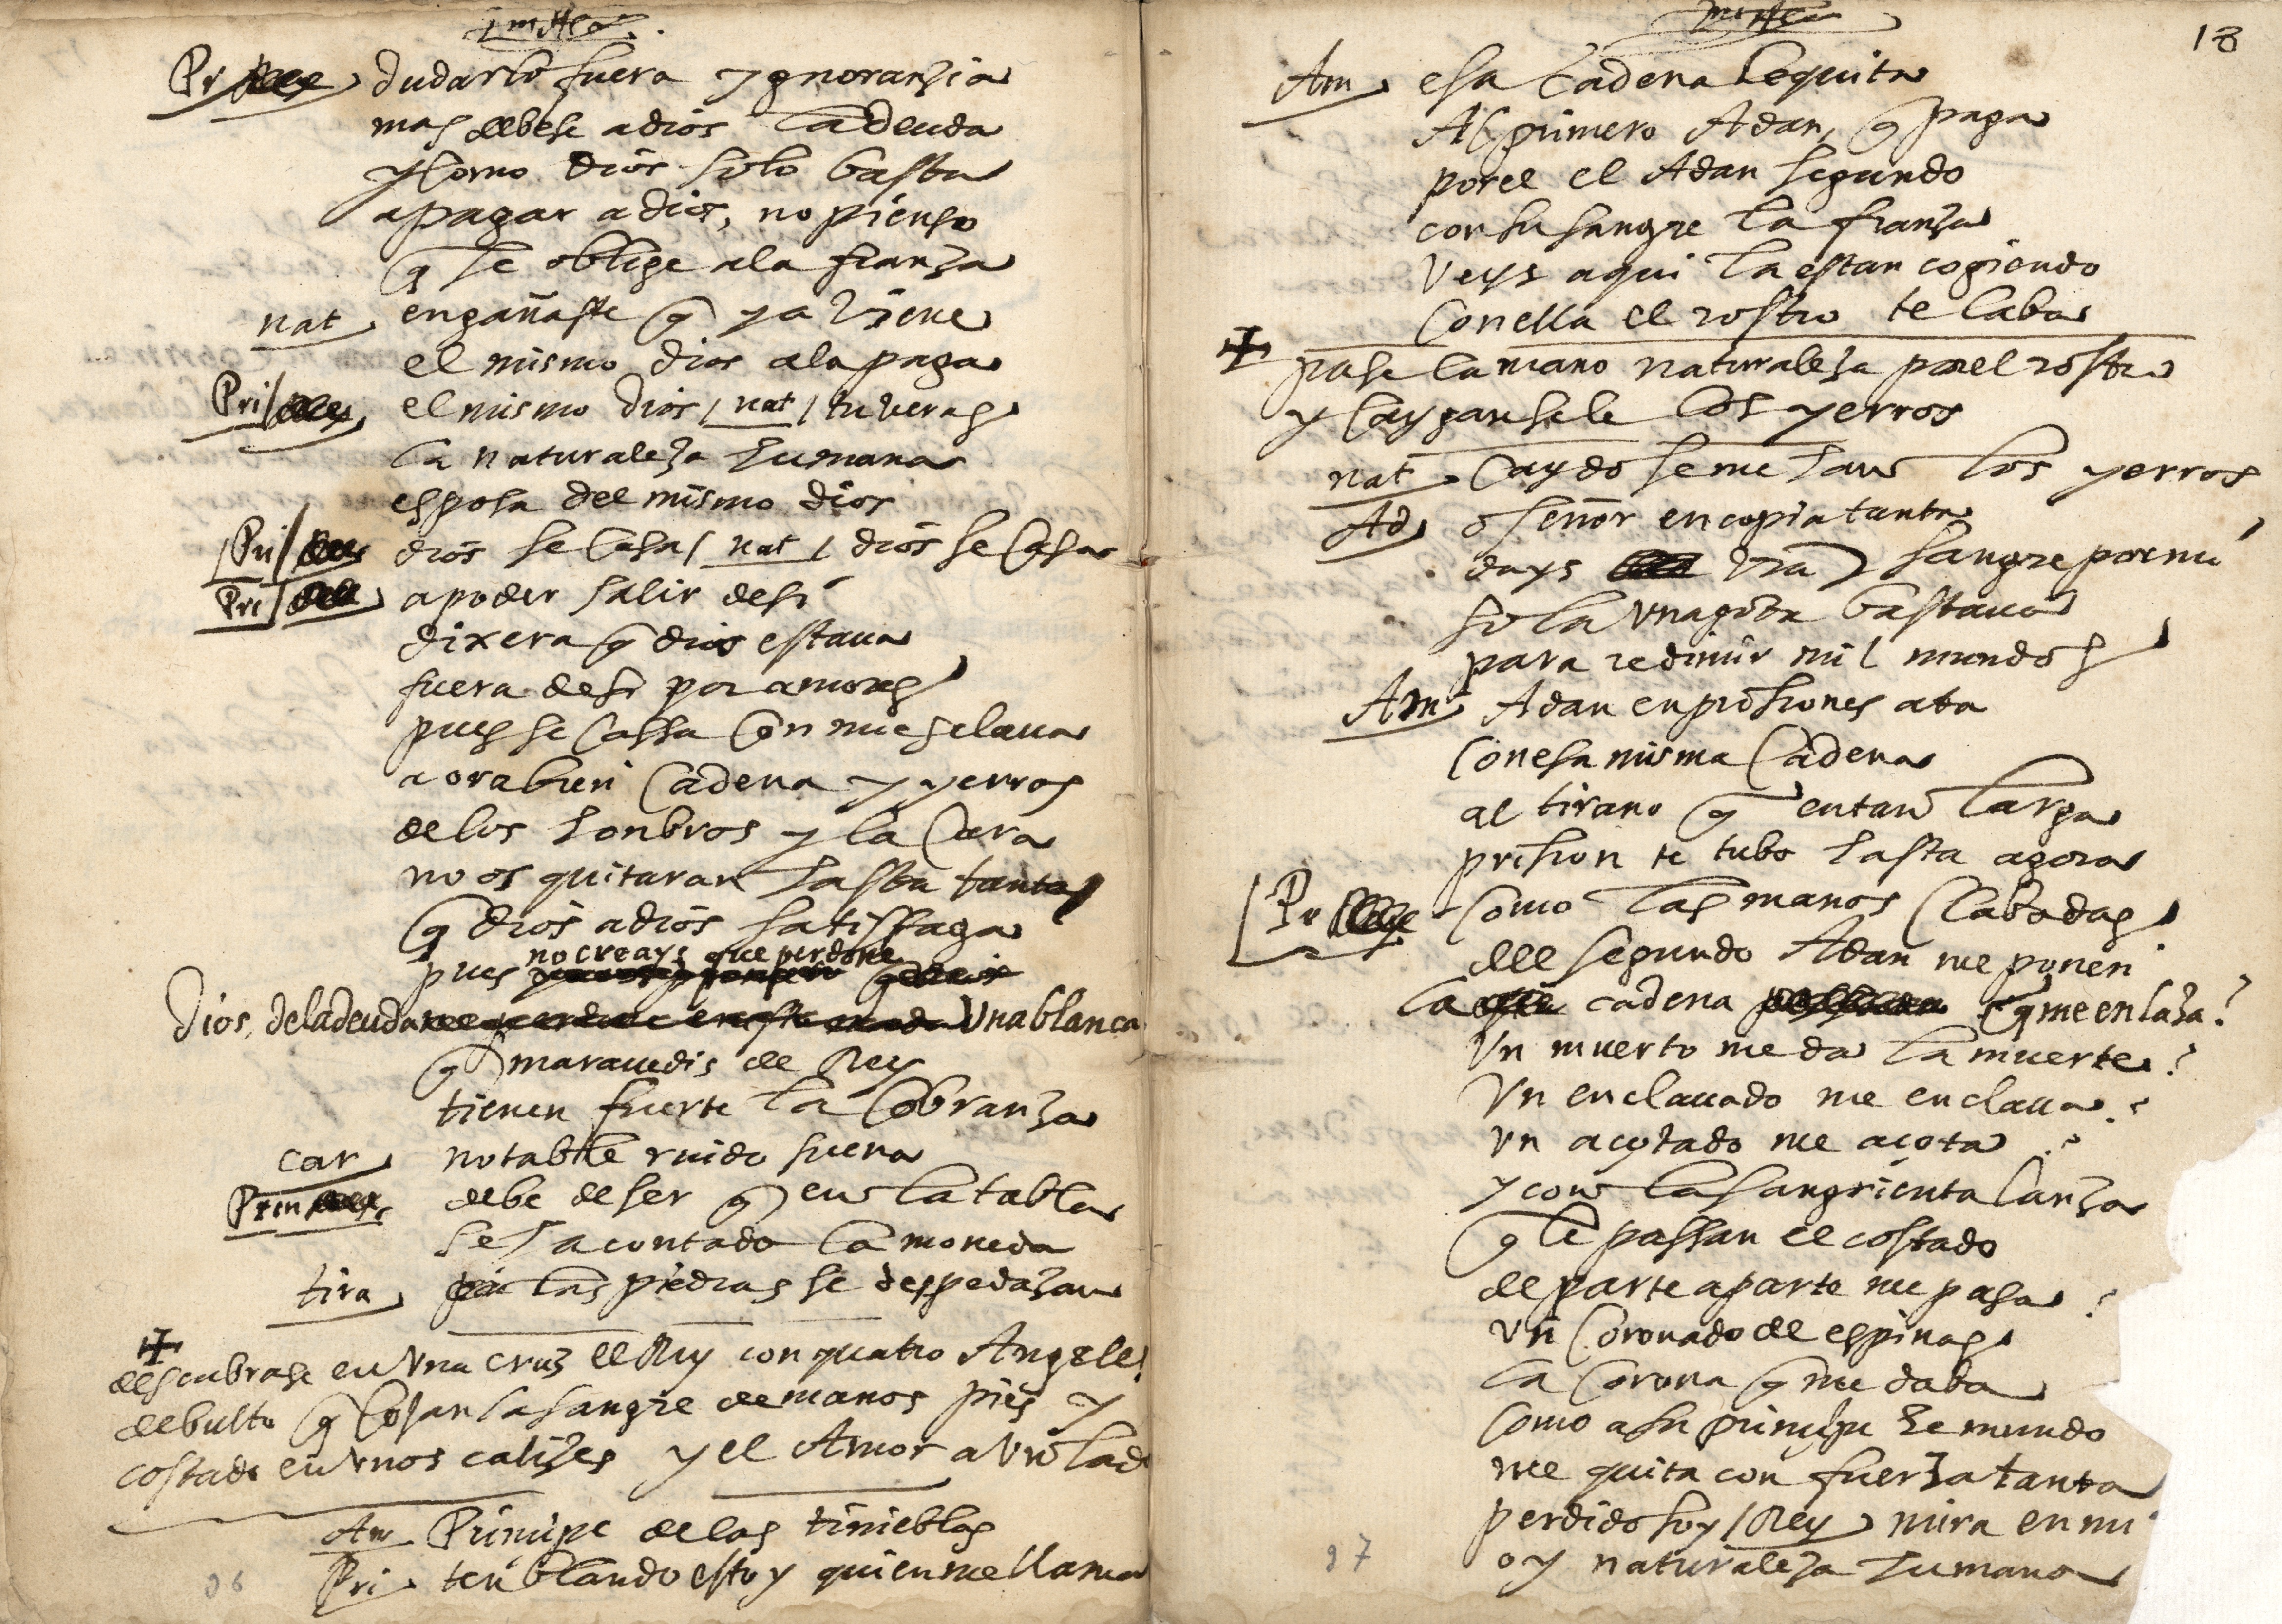 Pri dudarlo fuera ygnoranzia
mas debese a dios la deuda
y como dios solo basta
a pagar a dios, no pienso
q se oblige a la fianza
nat engañaste q ya viene
el mismo dios a la paga
Pri el mismo dios / nat / tu veras
la naturaleza humana
esposa del mismo dios
Pri dios se casa / nat / dios se casa
Pri a poder salir de si
dixera q dios estaua
fuera de si por amores
pues se cassa con mi esclaua
aora bien cadena y yerros
de los honbros y la cara
no os quitaran hasta tanto
q dios a dios satisfaga
pues no creays que perdone
Dios de la deuda una blanca
q marauedis de Rey
tienen fuerte la cobranza
car notable ruido suena
Prin debe de ser q en la tabla
se ha contado la moneda
tira las piedras se despedazan
descubrase en una cruz el Rey con quatro Angeles
de bulto q cojan la sangre de manos pies y
costado en unos calizes y el Amor a un lado
Am Principe de las tinieblas
Pri tenblando estoy quien me llama
96
18
Am esa cadena le quita
Al primero Adan, q paga
por el el Adan segundo
con su sangre la fianza
veys aqui la estan cogiendo
con ella el rostro te laba
pase la mano naturaleza por el rostro
y caygansele los yerros
nat caydo se me han los yerros
Ad o señor en copia tanta
days vra sangre por mi
sola una gota bastaua
para redimir mil mundos
Am Adan en prisiones ata
con esa misma cadena
al tirano q en tan larga
prision te tubo hasta agora
Pr como las manos clabadas
del segundo Adan me ponen
la cadena q me enlaza?
Un muerto me da la muerte?
Un enclauado me enclaua?
un açotado me açota?
y con la sangrienta lanza
q le passan el costado
de parte a parte me pasa?
un coronado de espinas
la corona q me daba
como a su principe el mundo
me quita con fuerza tanta
perdido soy / Rey mira en mi
oy naturaleza humana
97